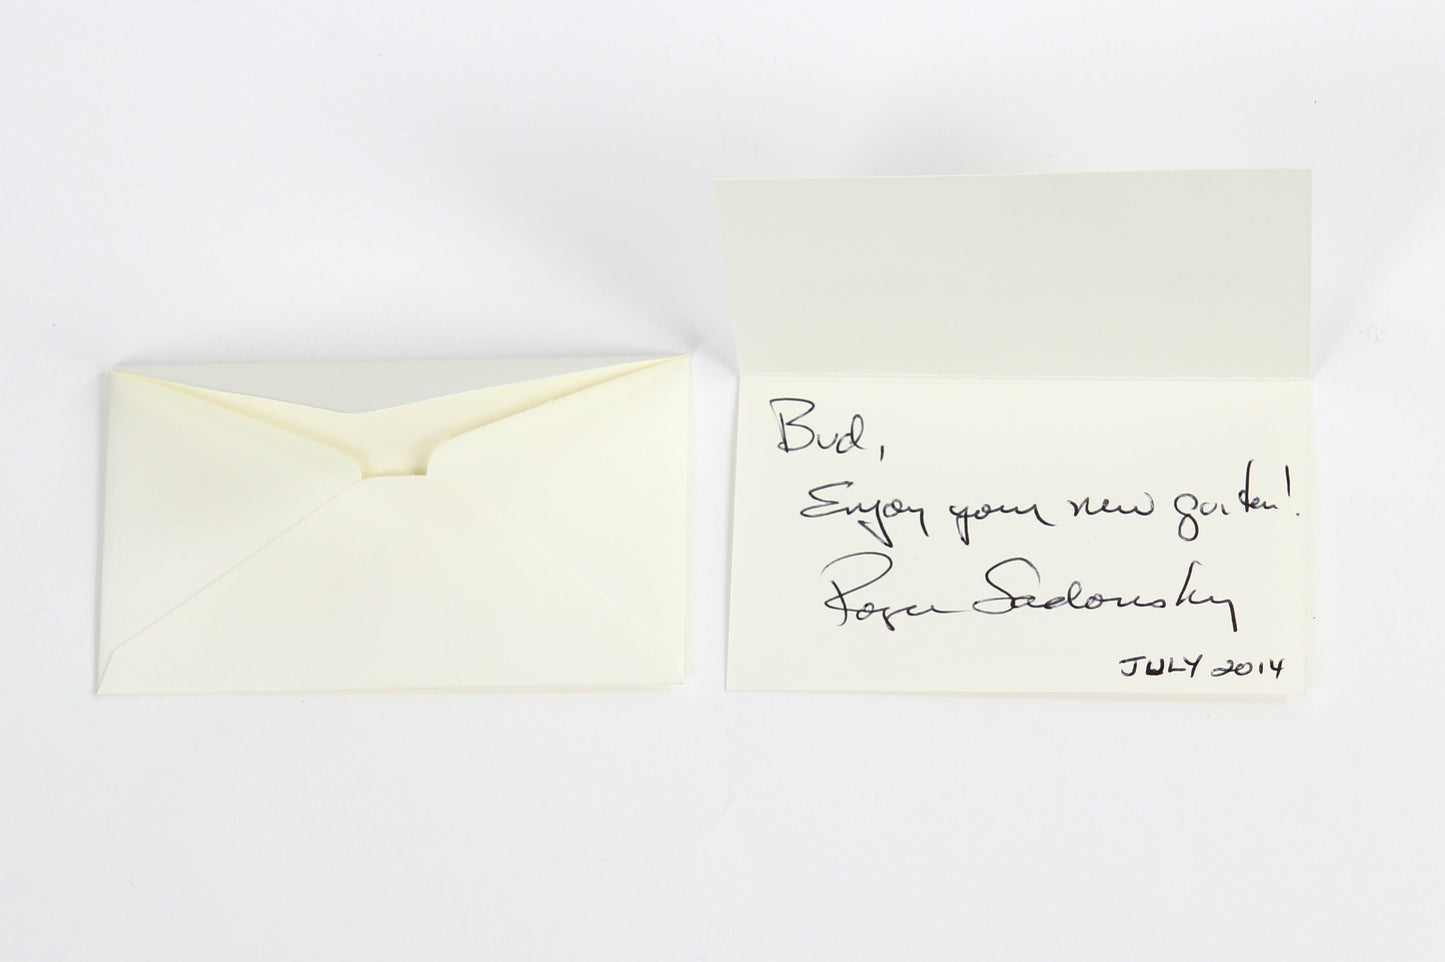 Bud,
Enjoy your new guitar!
Roger Sadowsky
JULY 2014